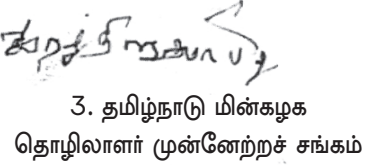 3. தமிழ்நாடு மின்கழக
தொழிலாளர் முன்னேற்றச் சங்கம்